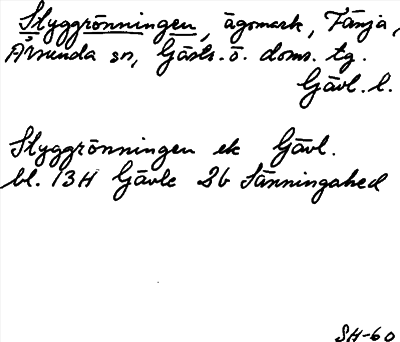 Styggrönningen, ägomark, Fänja,
Årsunda sn, Gästr. ö. doms. tg.
Gävl. l.
Styggrönningen ek Gävl.
bl. 13H Gävle 2b Sänningahed
SH-60